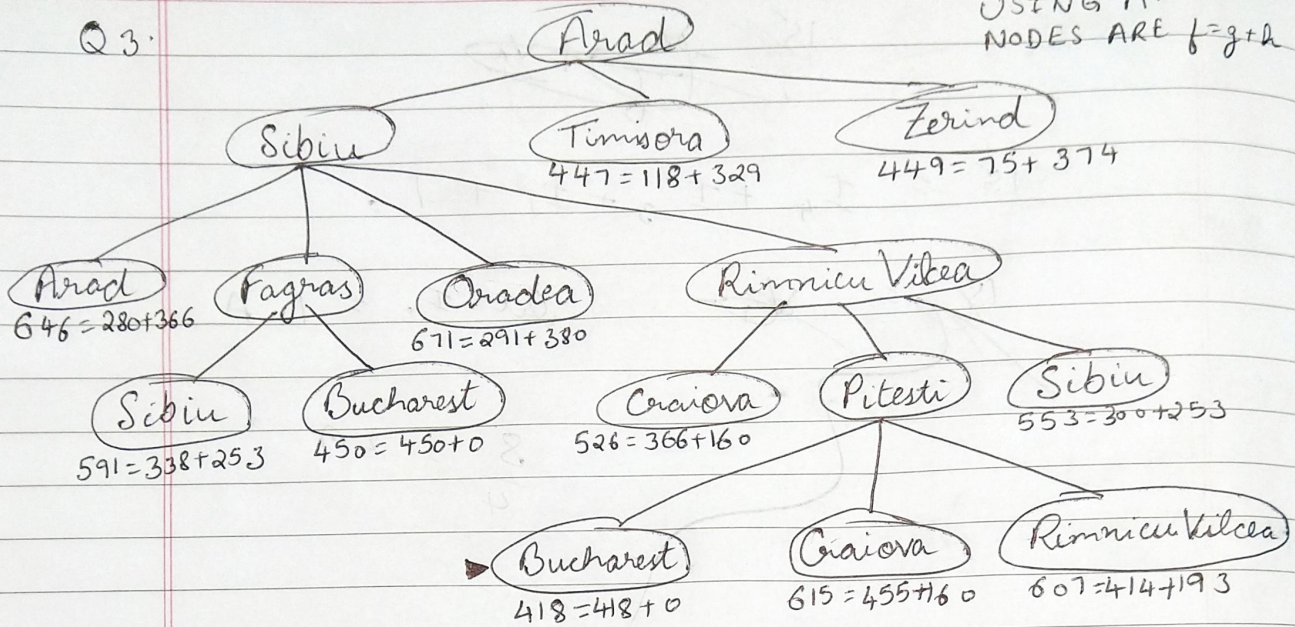 Q3.
USING
NODES ARE f=g+h
Arad
Sibiu
Timisora
447=118+329
Zerind
449=75+374
Arad
646=280+366
Fagras
Oradea
671=291+380
Rimnicu Vilcea
Sibiu
591=338+253
Bucharest
450=450+0
Craiova
526=366+160
Pitesti
Sibiu
553=300+253
Bucharest
418=418+0
Craiova
615=455+160
Rimnicu Vilcea
607=414+193